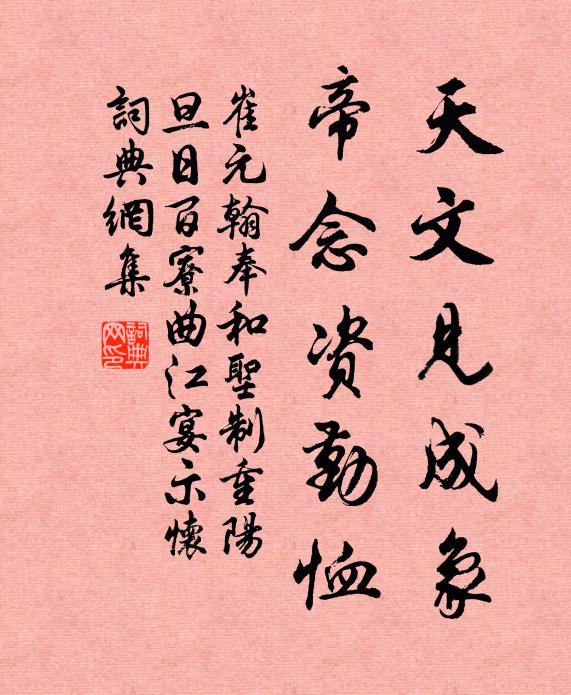 天文見成象
帝念资勤恤
崔元翰奉和聖制重陽
旦日百寮曲江宴示懷
詞典網集
詞典网印